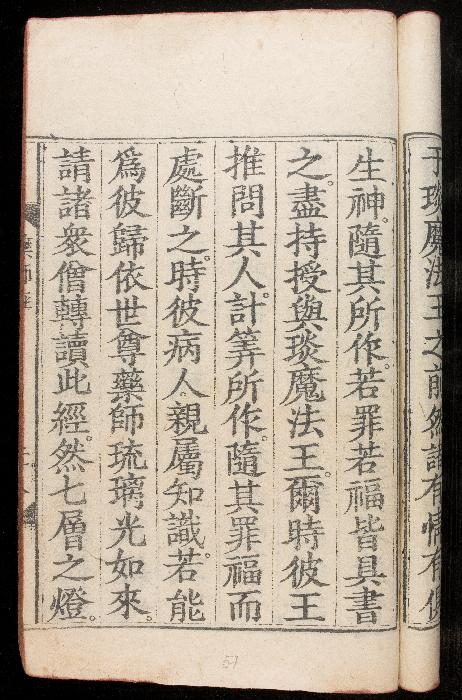 于琰魔法王之前然諸有情有俱
生神。隨其所作。若罪若福皆具書
之。盡持授與琰魔法王。爾時彼王
推問其人。計筭所作。隨其罪福而
處斷之。時彼病人。親屬知識。若能
爲彼歸依世尊藥師琉璃光如來。
請諸衆僧轉讀此經。然七層之燈。
57